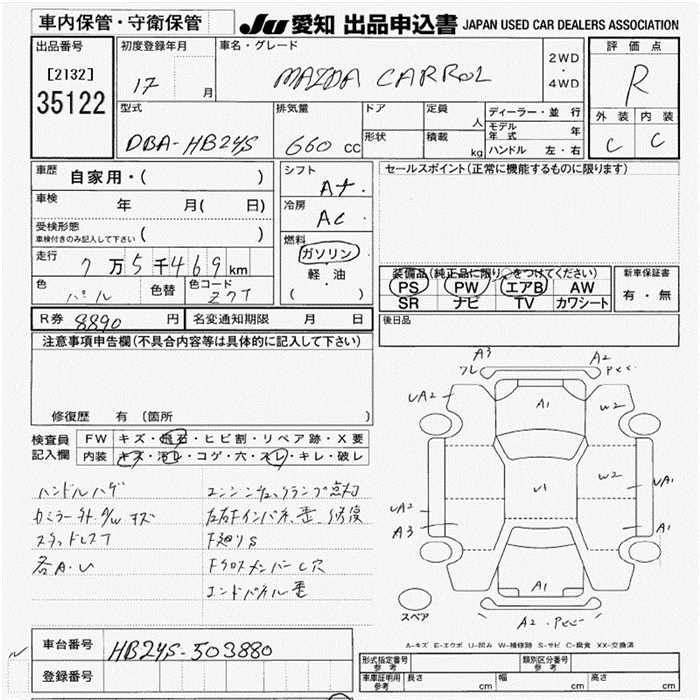 車内保管・守衛保管
JU 愛知 出品申込書 JAPAN USED CAR DEALERS ASSOCIATION
出品番号
[2132]
35122
初度登録年月
17 月
車名・グレード
MAZDA CARROL
2WD
・
4WD
評価点
R
外装 内装
C C
型式
DBA-HB24S
排気量
660 cc
ドア
形状
定員
人
積載
kg
ディーラー・並行
モデル年式 年
ハンドル 左・右
車歴
自家用・( )
車検 年 月( 日)
受検形態
車検付きのみ記入して下さい ( )
走行
7万5千469km
色
パール
色替
色コード
Z7T
シフト
AT
冷房
AC
燃料
ガソリン
・
軽油
( )
セールスポイント(正常に機能するものに限ります)
装備品(純正品に限り○をつけてください)
PS PW エアB AW
SR ナビ TV カワシート
新車保証書
有・無
R券 8890 円
名変通知期限 月 日
後日品
注意事項申告欄(不具合内容等は具体的に記入して下さい)
修復歴 有(箇所 )
検査員記入欄
FW キズ・飛石・ヒビ割・リペア跡・X要
内装 キズ・汚レ・コゲ・穴・スレ・キレ・破レ
ハンドルハゲ
エンジンチェックランプ点灯
スタッドレス7
下廻りS
各A.U
エンドパネル歪
A3
ワレ
A2
UA2
A1
W2
U1
W2
UA1
UA2
A3
A1
A1
A2
スペア
A-キズ E-エクボ U-凹み W-補修跡 S-サビ C-腐食 XX-交換済
車台番号
HB24S-503880
登録番号
形式指定番号 参考
類別区分番号 参考
車庫証明用 参考
長さ cm
幅 cm
高さ cm